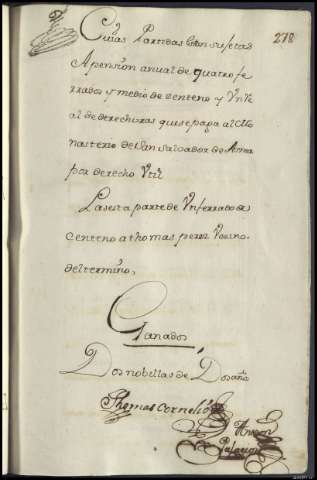 278
Cuias Partidas estan sujetas
A pension anual de quatro fe
rrados y medio de centeno y Vn rre
al de derechuras que se paga al Mo
nasterio de San Salvador de
por derecho Vtil
La sesta parte de Vn ferrado de
Centeno a thomas perez Vecino
del termino,
Ganados
Dos nobillas de Dos años
Thomas Cornelio